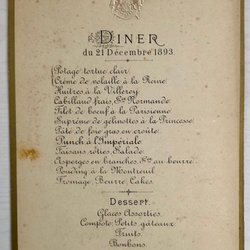 DINER
du 21 Décembre 1893
Potage tortue clair
Crème de volaille à la Reine
Huitres à la Villeroy
Cabillaud frais, Sce Normande
Filet de boeuf à la Parisienne
Suprême de gelinottes à la Princesse
Pâté de foie gras en croûte
Punch à l'Impériale
Faisans rôtis, Salade
Asperges en branches, Sce au beurre
Pouding à la Montreuil
Fromage, Beurre, Cakes.
Dessert.
Glaces Assorties
Compote, Petits gâteaux
Fruits
Bonbons.